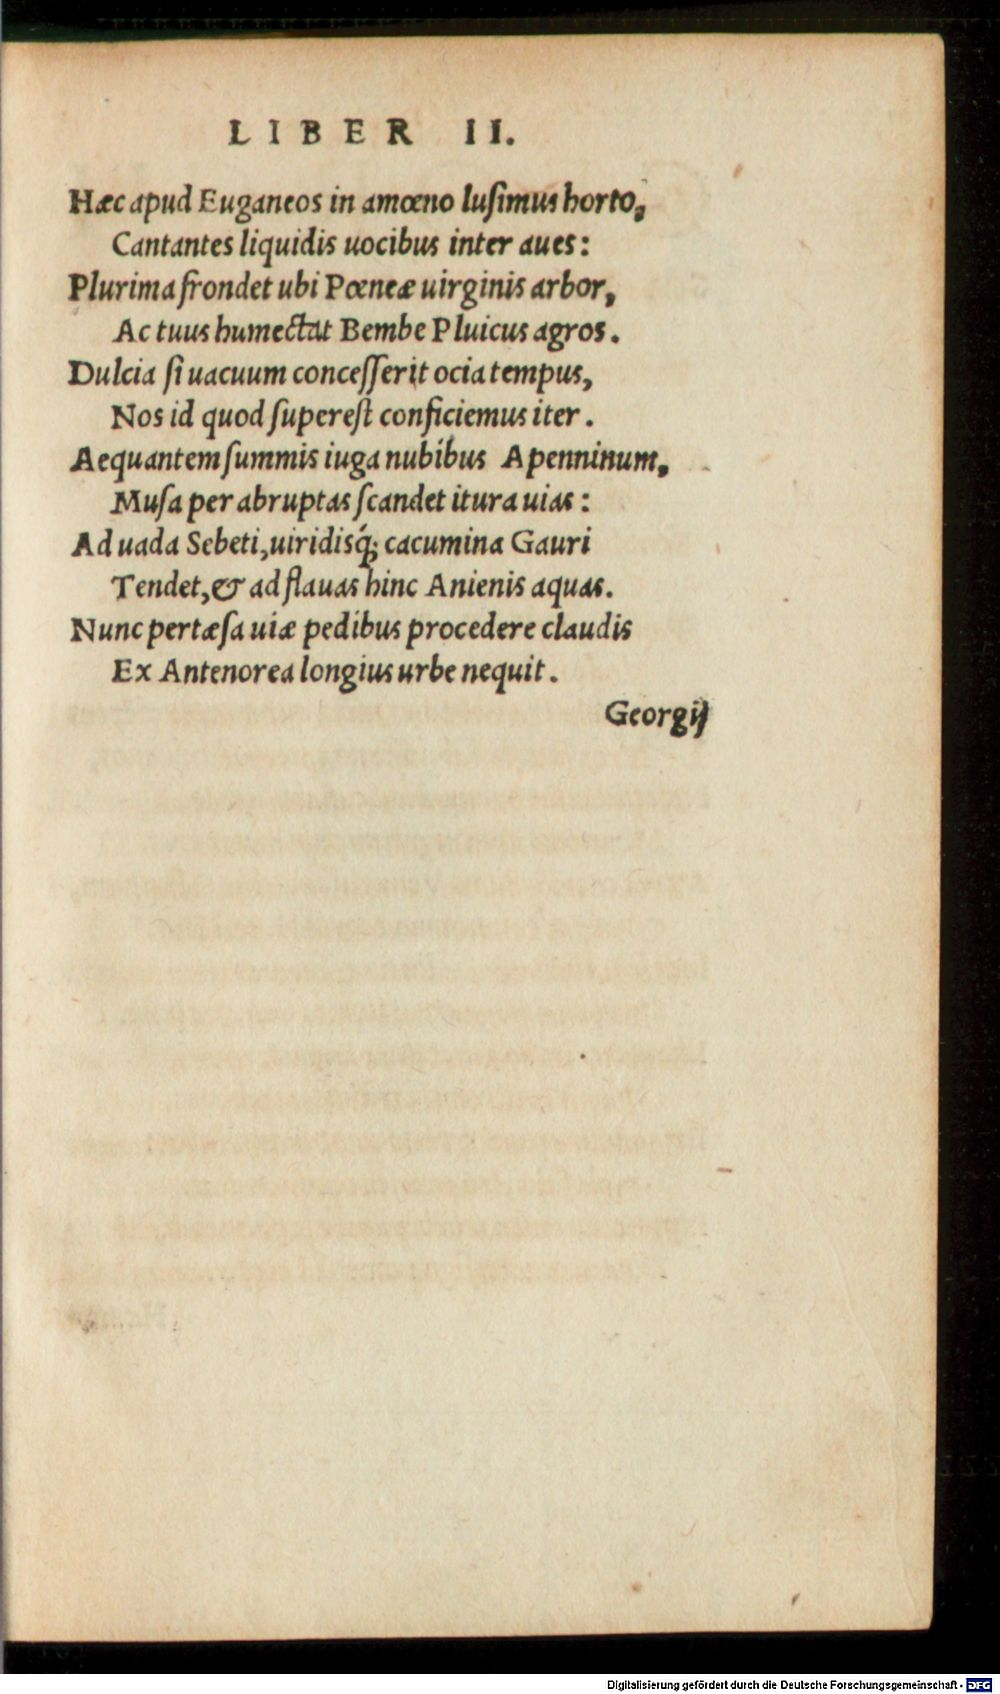 LIBER II.
Hæc apud Euganeos in amœno luſimus horto,
Cantantes liquidis uocibus inter aues:
Plurima frondet ubi Pœneæ uirginis arbor,
Ac tuus humectat Bembe Pluicus agros.
Dulcia ſi uacuum conceſſerit ocia tempus,
Nos id quod ſupereſt conficiemus iter.
Aequantem ſummis iuga nubibus Apenninum,
Muſa per abruptas ſcandet itura uias:
Ad uada Sebeti, uiridisq́; cacumina Gauri
Tendet, & ad flauas hinc Anienis aquas.
Nunc pertæſa uiæ pedibus procedere claudis
Ex Antenorea longius urbe nequit.
Georgij
Digitalisierung gefördert durch die Deutsche Forschungsgemeinschaft - DFG